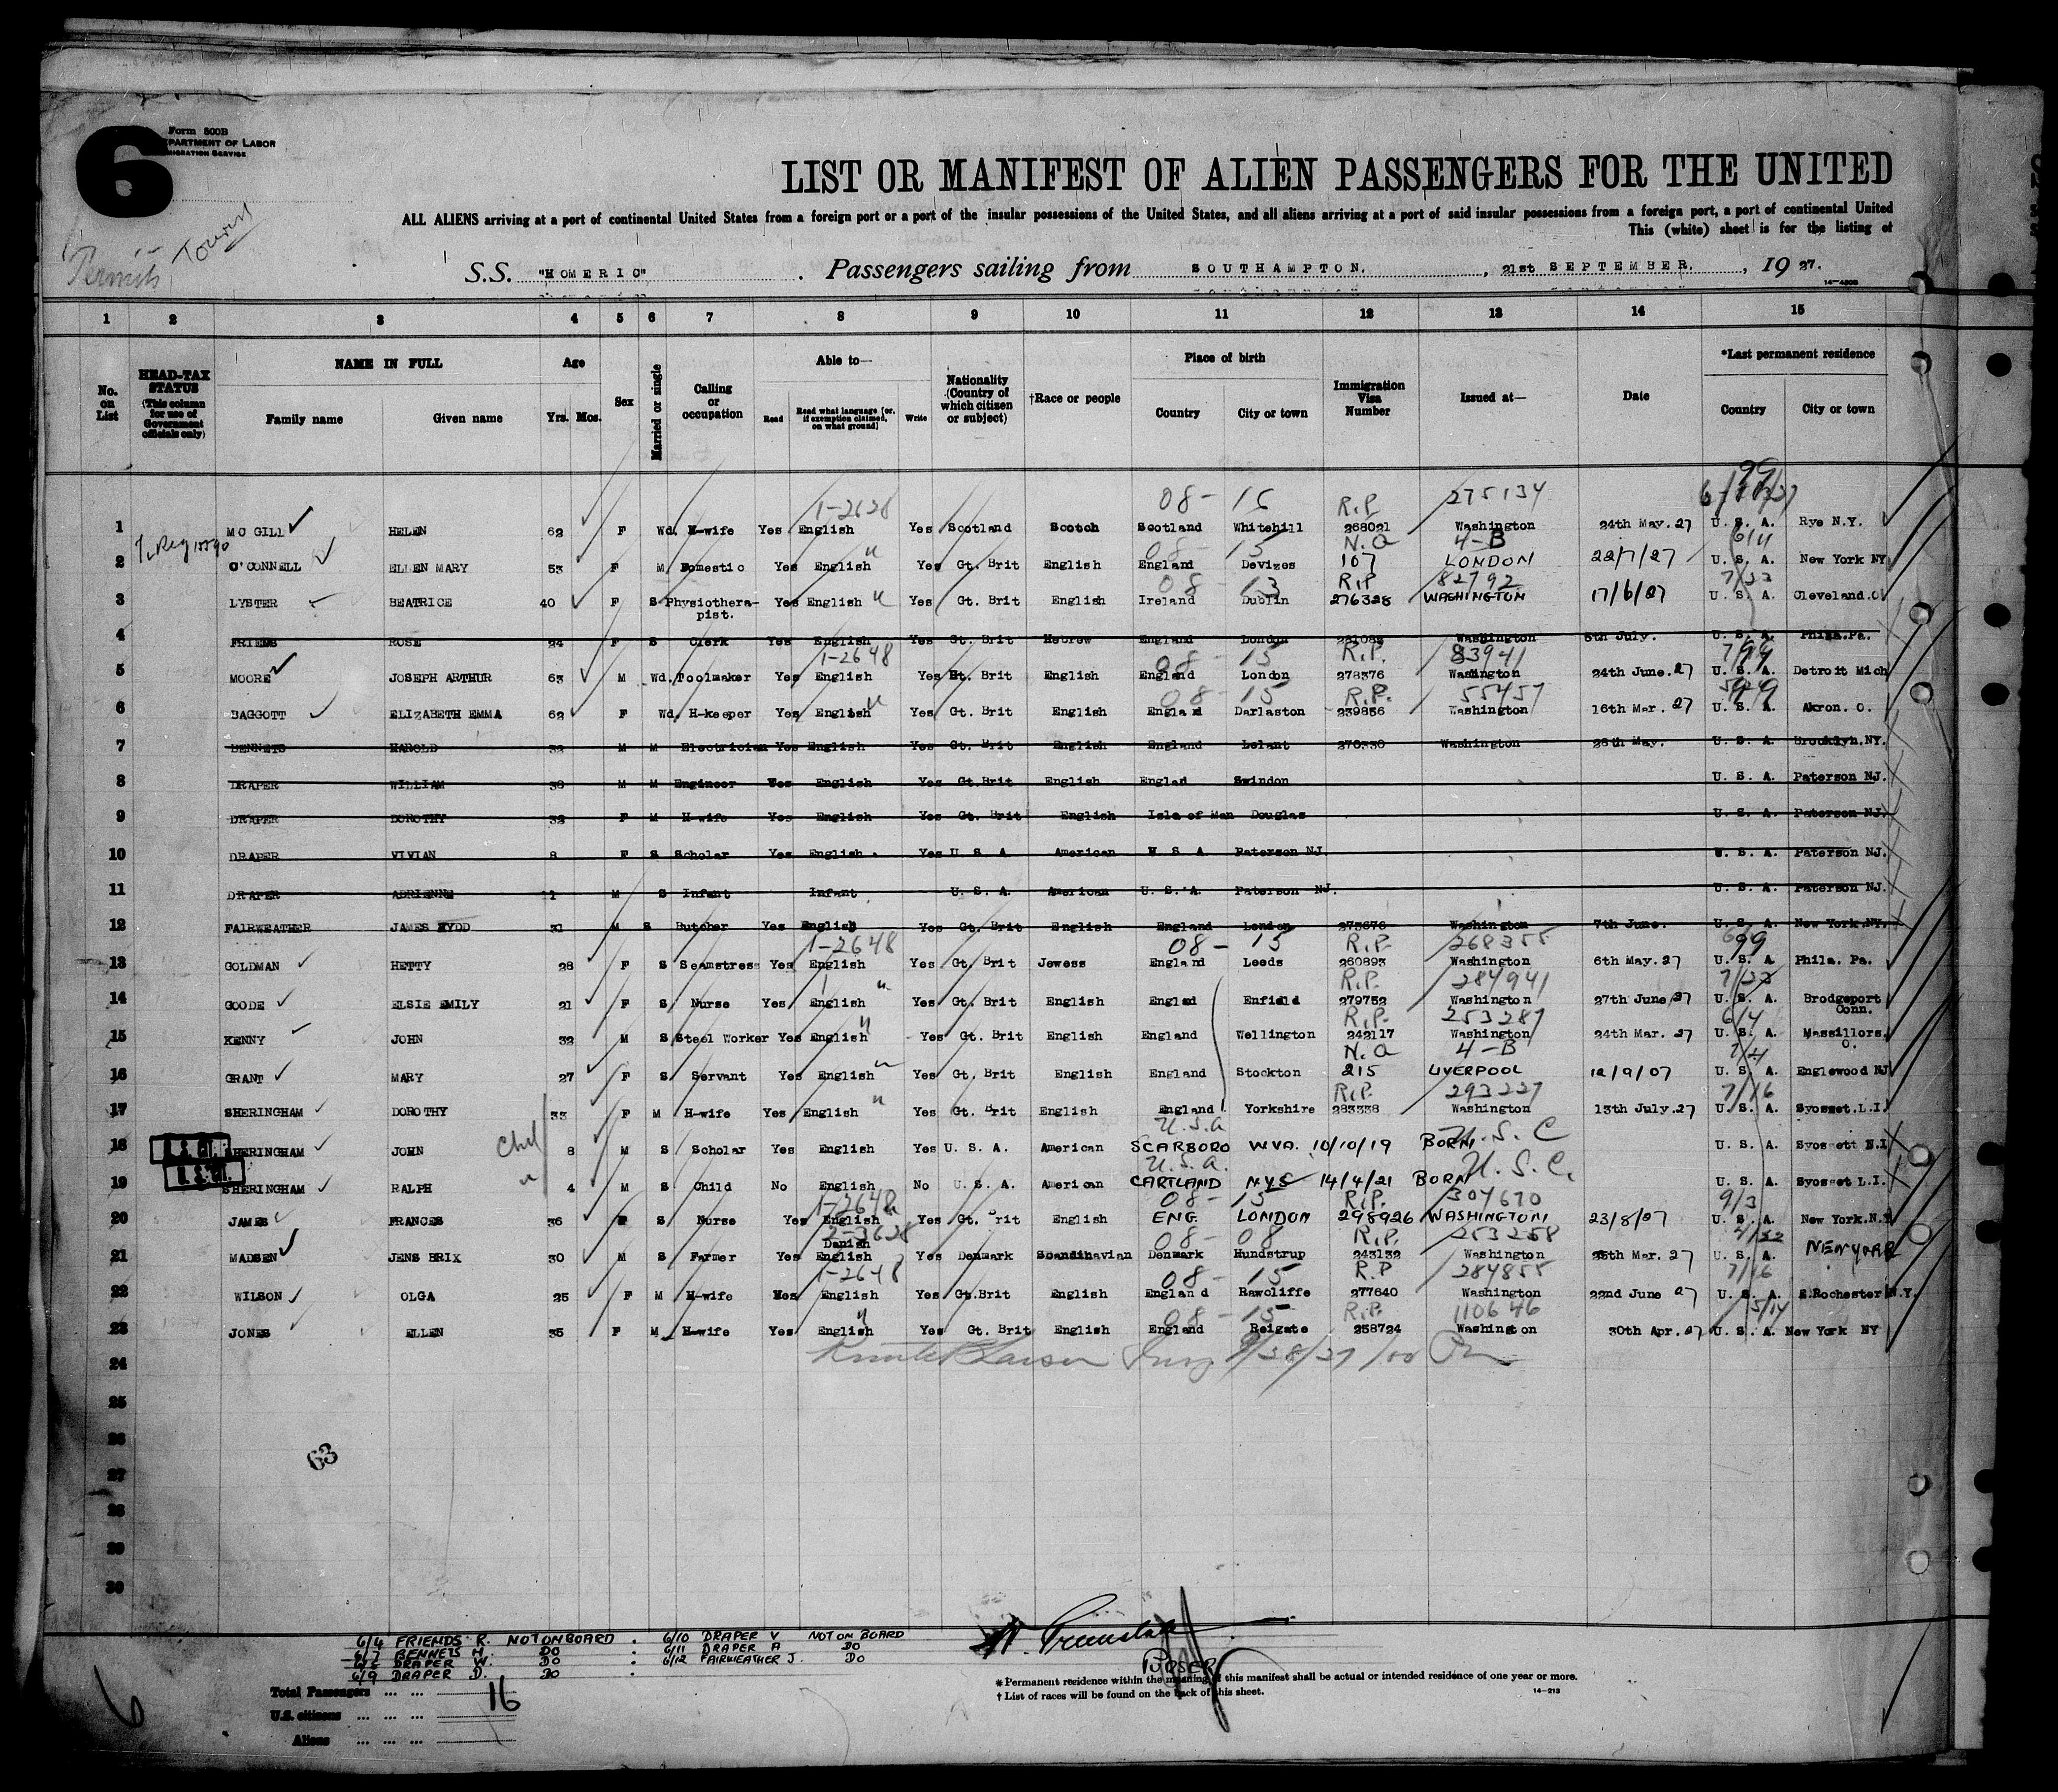 6
Form 500B
DEPARTMENT OF LABOR
IMMIGRATION SERVICE
LIST OR MANIFEST OF ALIEN PASSENGERS FOR THE UNITED
ALL ALIENS arriving at a port of continental United States from a foreign port or a port of the insular possessions of the United States, and all aliens arriving at a port of said insular possessions from a foreign port, a port of continental United
This (white) sheet is for the listing of
Permits
S.S. "HOMERIC" Passengers sailing from SOUTHAMPTON, 21st SEPTEMBER, 1927.
14—4808
1 2 3 4 5 6 7 8 9 10 11 12 13 14 15
No. on List
HEAD-TAX STATUS (This column for use of Government officials only)
NAME IN FULL
Family name Given name
Age
Yrs. Mos.
Sex
Married or single
Calling or occupation
Able to—
Read Read what language [or, if exemption claimed, on what ground] Write
Nationality (Country of which citizen or subject)
†Race or people
Place of birth
Country City or town
Immigration Visa Number
Issued at—
Date
*Last permanent residence
Country City or town
1-2628 08- 15 R.P. 275134 99
1 MC GILL HELEN 62 F Wd. H-wife Yes English Yes Scotland Scotch Scotland Whitehill 268021 Washington 24th May. 27 U. S. A. Rye N.Y.
08- 15 N.A 4-B 6/4
2 O'CONNELL ELLEN MARY 53 F M Domestic Yes English Yes Gt. Brit English England Devizes 107 LONDON 22/7/27 U. S. A. New York NY
08- 13 R.P 82792 7/22
3 LYSTER BEATRICE 40 F S Physiotherapist. Yes English Yes Gt. Brit English Ireland Dublin 276328 WASHINGTON 17/6/27 U. S. A. Cleveland.O.
4 FRIENS ROSE 24 F S Clerk Yes English Yes Gt. Brit Hebrew England London Washington 6th July. U. S. A. Phila.Pa.
1-2648 08- 15 R.P. 83941
5 MOORE JOSEPH ARTHUR 63 M Wd. Toolmaker Yes English Yes Gt. Brit English England London 278376 Washington 24th June. 27 U. S. A. Detroit Mich
08- 15 R.P. 55457
6 BAGGOTT ELIZABETH EMMA 62 F Wd. H-keeper Yes English Yes Gt. Brit English England Darlaston 239856 Washington 16th Mar. 27 U. S. A. Akron. O.
7 BENNETS HAROLD 32 M M Electrician Yes English Yes Gt. Brit English England Lelant 270330 Washington 28th May. U. S. A. Brooklyn.NY.
8 DRAPER WILLIAM 38 M M Engineer Yes English Yes Gt.Brit English Englan Swindon U. S. A. Paterson NJ.
9 DRAPER DOROTHY 32 F M H-wife Yes English Yes Gt. Brit English Isle of Man Douglas U. S. A. Paterson NJ.
10 DRAPER VIVIAN 8 F S Scholar Yes English Yes U. S. A. American U. S. A Paterson NJ. U. S. A. Paterson NJ.
11 DRAPER ADRIENNE 1 M S Infant Infant U. S. A. American U. S. A. Paterson NJ. U. S. A. Paterson NJ.
12 FAIRWEATHER JAMES HYDD 31 M S Butcher Yes English Yes Gt. Brit English England London 273676 Washington 7th June. U. S. A. New York.NY.
1-2648 08- 15 R.P. 268355 99
13 GOLDMAN HETTY 28 F S Seamstress Yes English Yes Gt. Brit Jewess England Leeds 260893 Washington 6th May. 27 U. S. A. Phila. Pa.
R.P. 284941 7/22
14 GOODE ELSIE EMILY 21 F S Nurse Yes English Yes Gt. Brit English Englad Enfield 279752 Washington 27th June 27 U. S. A. Brodgeport Conn.
R.P. 253287 6/4
15 KENNY JOHN 32 M S Steel Worker Yes English Yes Gt. Brit English England Wellington 242117 Washington 24th Mar. 27 U. S. A. Massillors. O.
N.A 4-B 7/4
16 GRANT MARY 27 F S Servant Yes English Yes Gt. Brit English England Stockton 215 LIVERPOOL 12/9/27 U. S. A. Englewood NJ
R.P. 293227 7/16
17 SHERINGHAM DOROTHY 33 F M H-wife Yes English Yes Gt. Brit English England Yorkshire 283338 Washington 13th July.27 U. S. A. Syosset.L.I.
U.S.A U.S.C
18 SHERINGHAM JOHN 8 M S Scholar Yes English Yes U. S. A. American SCARBORO W.VA. 10/10/19 BORN U. S. A. Syossett N.I
U.S.A. U.S.C.
19 SHERINGHAM RALPH 4 M S Child No English No U. S. A. American CARTLAND NYS 14/4/21 BORN U. S. A. Syosset L.I.
1-2648 08- 15 R.P. 304670 9/3
20 JAMES FRANCES 36 F S Nurse Yes English Yes Gt. Brit English ENG. LONDON 298926 WASHINGTON 23/8/27 U. S. A. New York.N.Y
2-3628 08- 08 R.P. 253258
21 MADSEN JENS BRIX 30 M S Farmer Yes Danish English Yes Denmark Scandinavian Denmark Hundstrup 243132 Washington 25th Mar. 27 U. S. A. NEW YORK
1-2648 08- 15 R.P 284855 7/16
22 WILSON OLGA 25 F M H-wife Yes English Yes Gt.Brit English England Rawcliffe 277640 Washington 22nd June 27 U. S. A. E.Rochester N.Y.
08- 15 R.P. 110646 5/14
23 JONES ELLEN 35 F M H-wife Yes English Yes Gt. Brit English England Reigate 258724 Washington 30th Apr. 27 U. S. A. New York NY
24
25
26
27
28
29
30
63
6/4 FRIENDS R. NOT ON BOARD . 6/10 DRAPER V NOT ON BOARD
6/7 BENNETS H. DO 6/11 DRAPER A DO
6/8 DRAPER W. DO 6/12 FAIRWEATHER J. DO
6/9 DRAPER D. DO
PURSER
Total Passengers ... ... 16
U.S. citizens ... ... ...
Aliens ... ... ...
* Permanent residence within the meaning of this manifest shall be actual or intended residence of one year or more.
† List of races will be found on the back of this sheet.
14—213
6